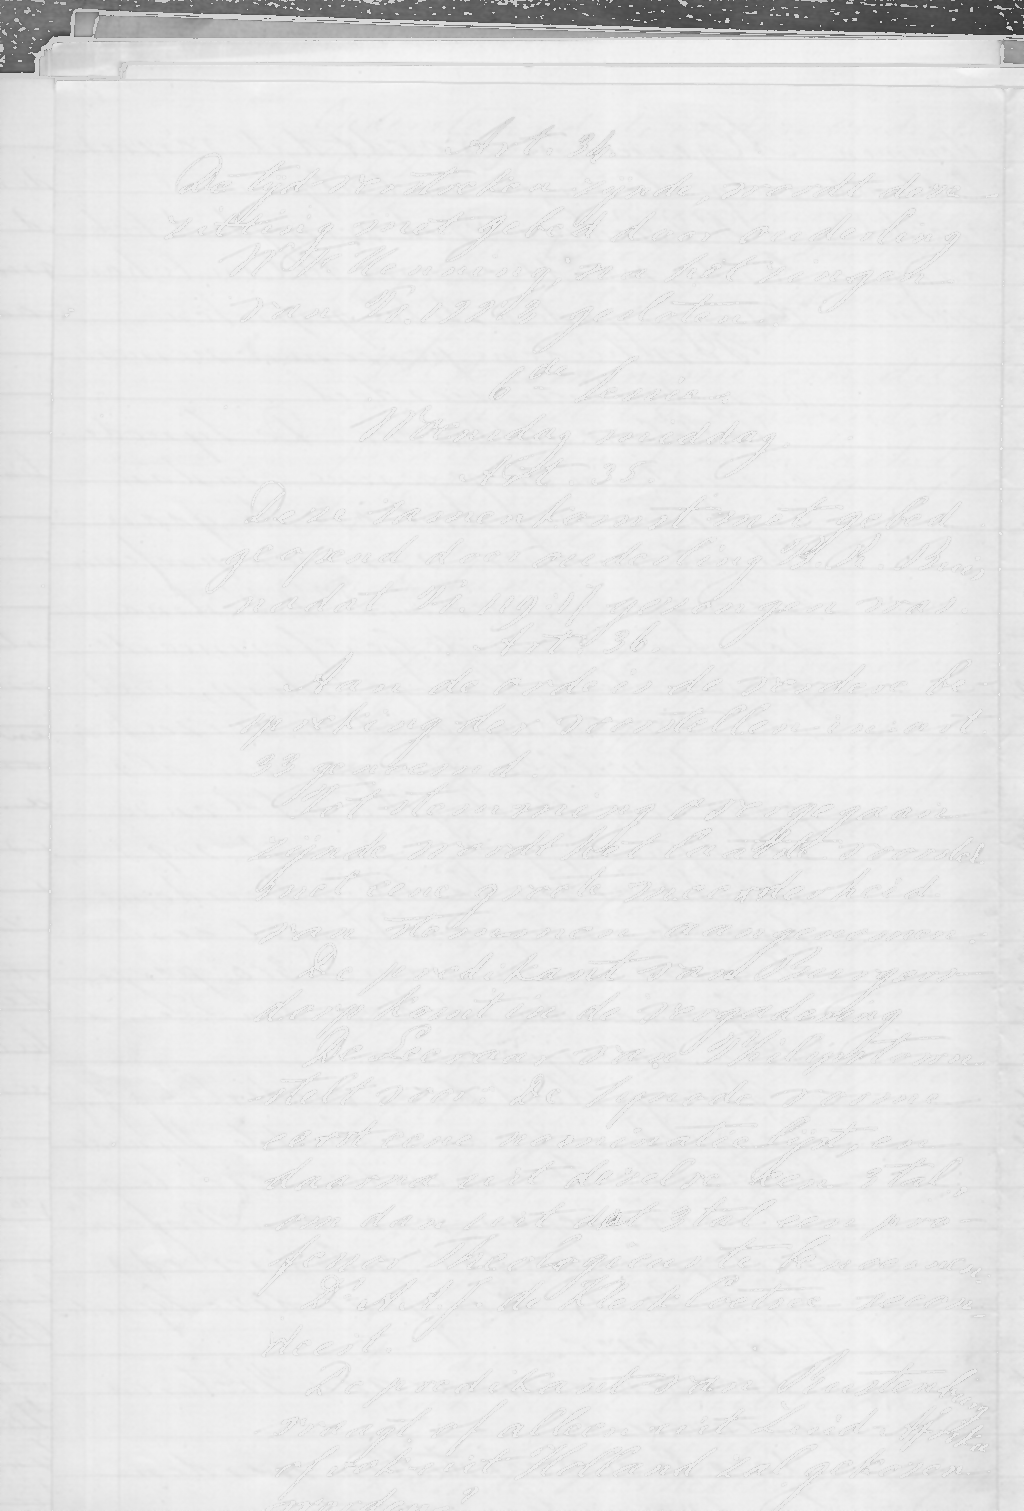 Art. 34
De tijd verstreken zijnde, wordt deze
zitting met gebed door ouderling
Venning, na het zingen
van Ps. gesloten.
6de Sessie.
Woensdag middag
Art. 35
Deze samenkomst met gebed
geopend door ouderling
nadat Ps. 119:17 gezongen was.
Art. 36
Aan de orde is de verdere be-
spreking der voorstellen in art
33 genoemd.
Tot stemming overgegaan
zijnde wordt het laatste voorstel
met een groote meerderheid
van stemmen aangenomen.
De predikant van Burgers-
dorp komt in de vergadering
De Leeraar van Philipstown
stelt voor: De Synode vorme
eerst eene nominatie lijst, en
daarna uit dezelve een 3 tal,
om dan uit dat 3 tal een pro-
fessor Theologiae te benoemen
Ds. de Klerk Coetsee secon-
deert.
De predikant van Rustenburg
vraagt of alleen uit Zuid-Afrika
of ook uit Holland zal gekozen
worden?